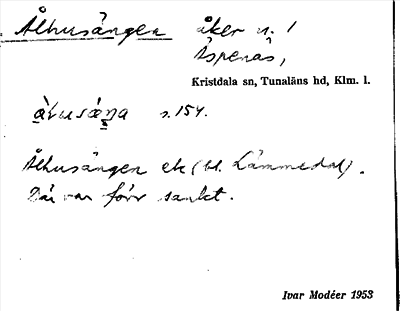 Ålhusängen åker n. 1
Äspenäs,
Kristdala sn, Tunaläns hd, Klm. l.
s. 154.
Ålhusängen ek (bl. Lämmedal).
Där var förr sankt.
Ivar Modéer 1953